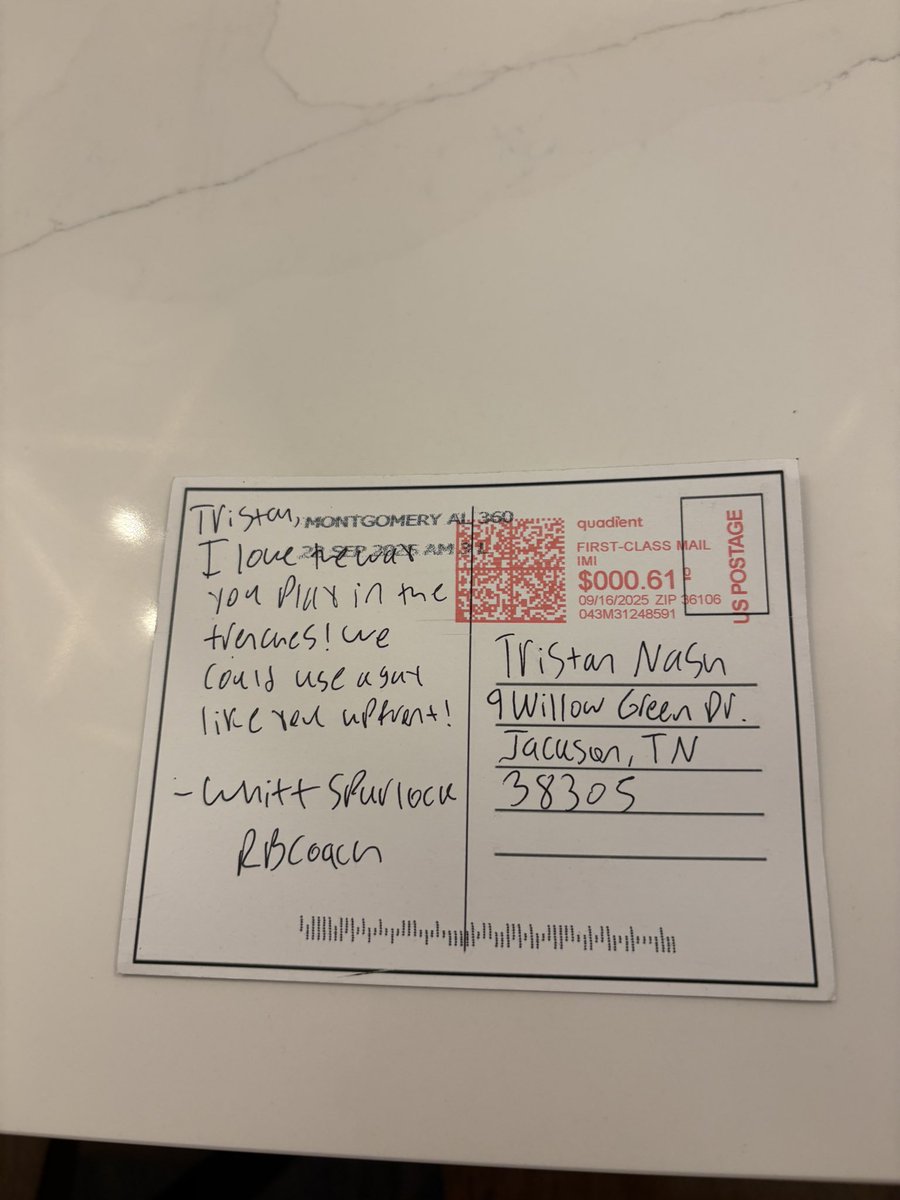 Tristan,
I love the way
you play in the
trenches! we
could use a guy
like you upfront!
- Whitt Spurlock
RB Coach
MONTGOMERY AL 360
SEP 2025 AM
quadient
FIRST-CLASS MAIL
IMI
$000.61
09/16/2025 ZIP 36106
043M31248591
US POSTAGE
Tristan Nash
9 Willow Green Dr.
Jackson, TN
38305